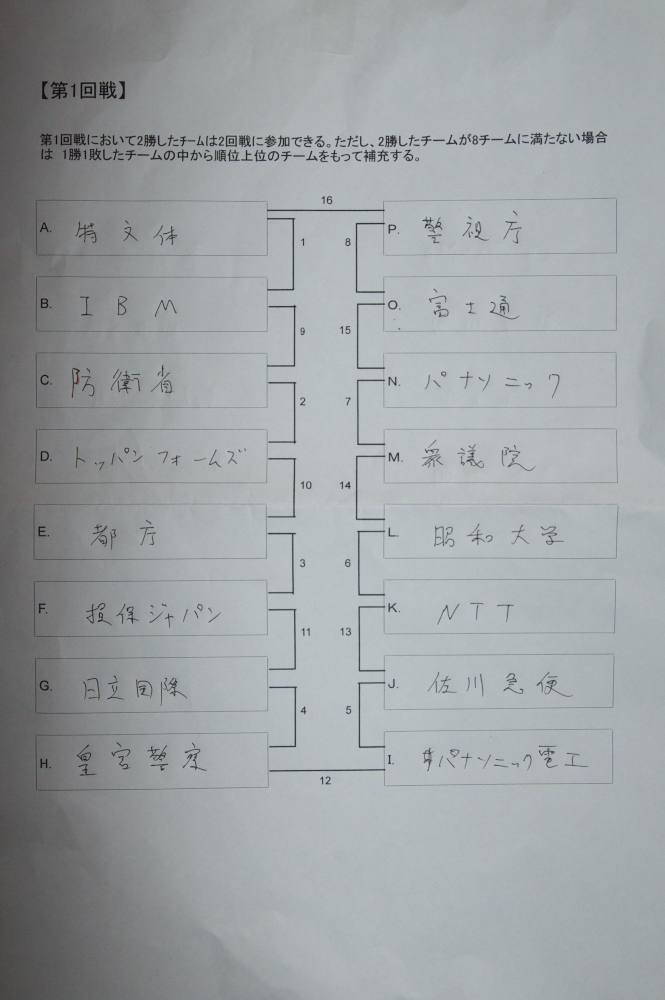 【第1回戦】
第1回戦において2勝したﾁｰﾑは2回戦に参加できる。ただし、2勝したチームが8チームに満たない場合
は 1勝1敗したチームの中から順位上位のチームをもって補充する。
16
A. 特文体
1
8
P. 警視庁
B. IBM
9
15
O. 富士通
C. 防衛省
2
7
N. パナソニック
D. トッパンフォームズ
10
14
M. 衆議院
E. 都庁
3
6
L. 昭和大学
F. 損保ジャパン
11
13
K. NTT
G. 日立国際
4
5
J. 佐川急便
H. 皇宮警察
12
I. パナソニック電工